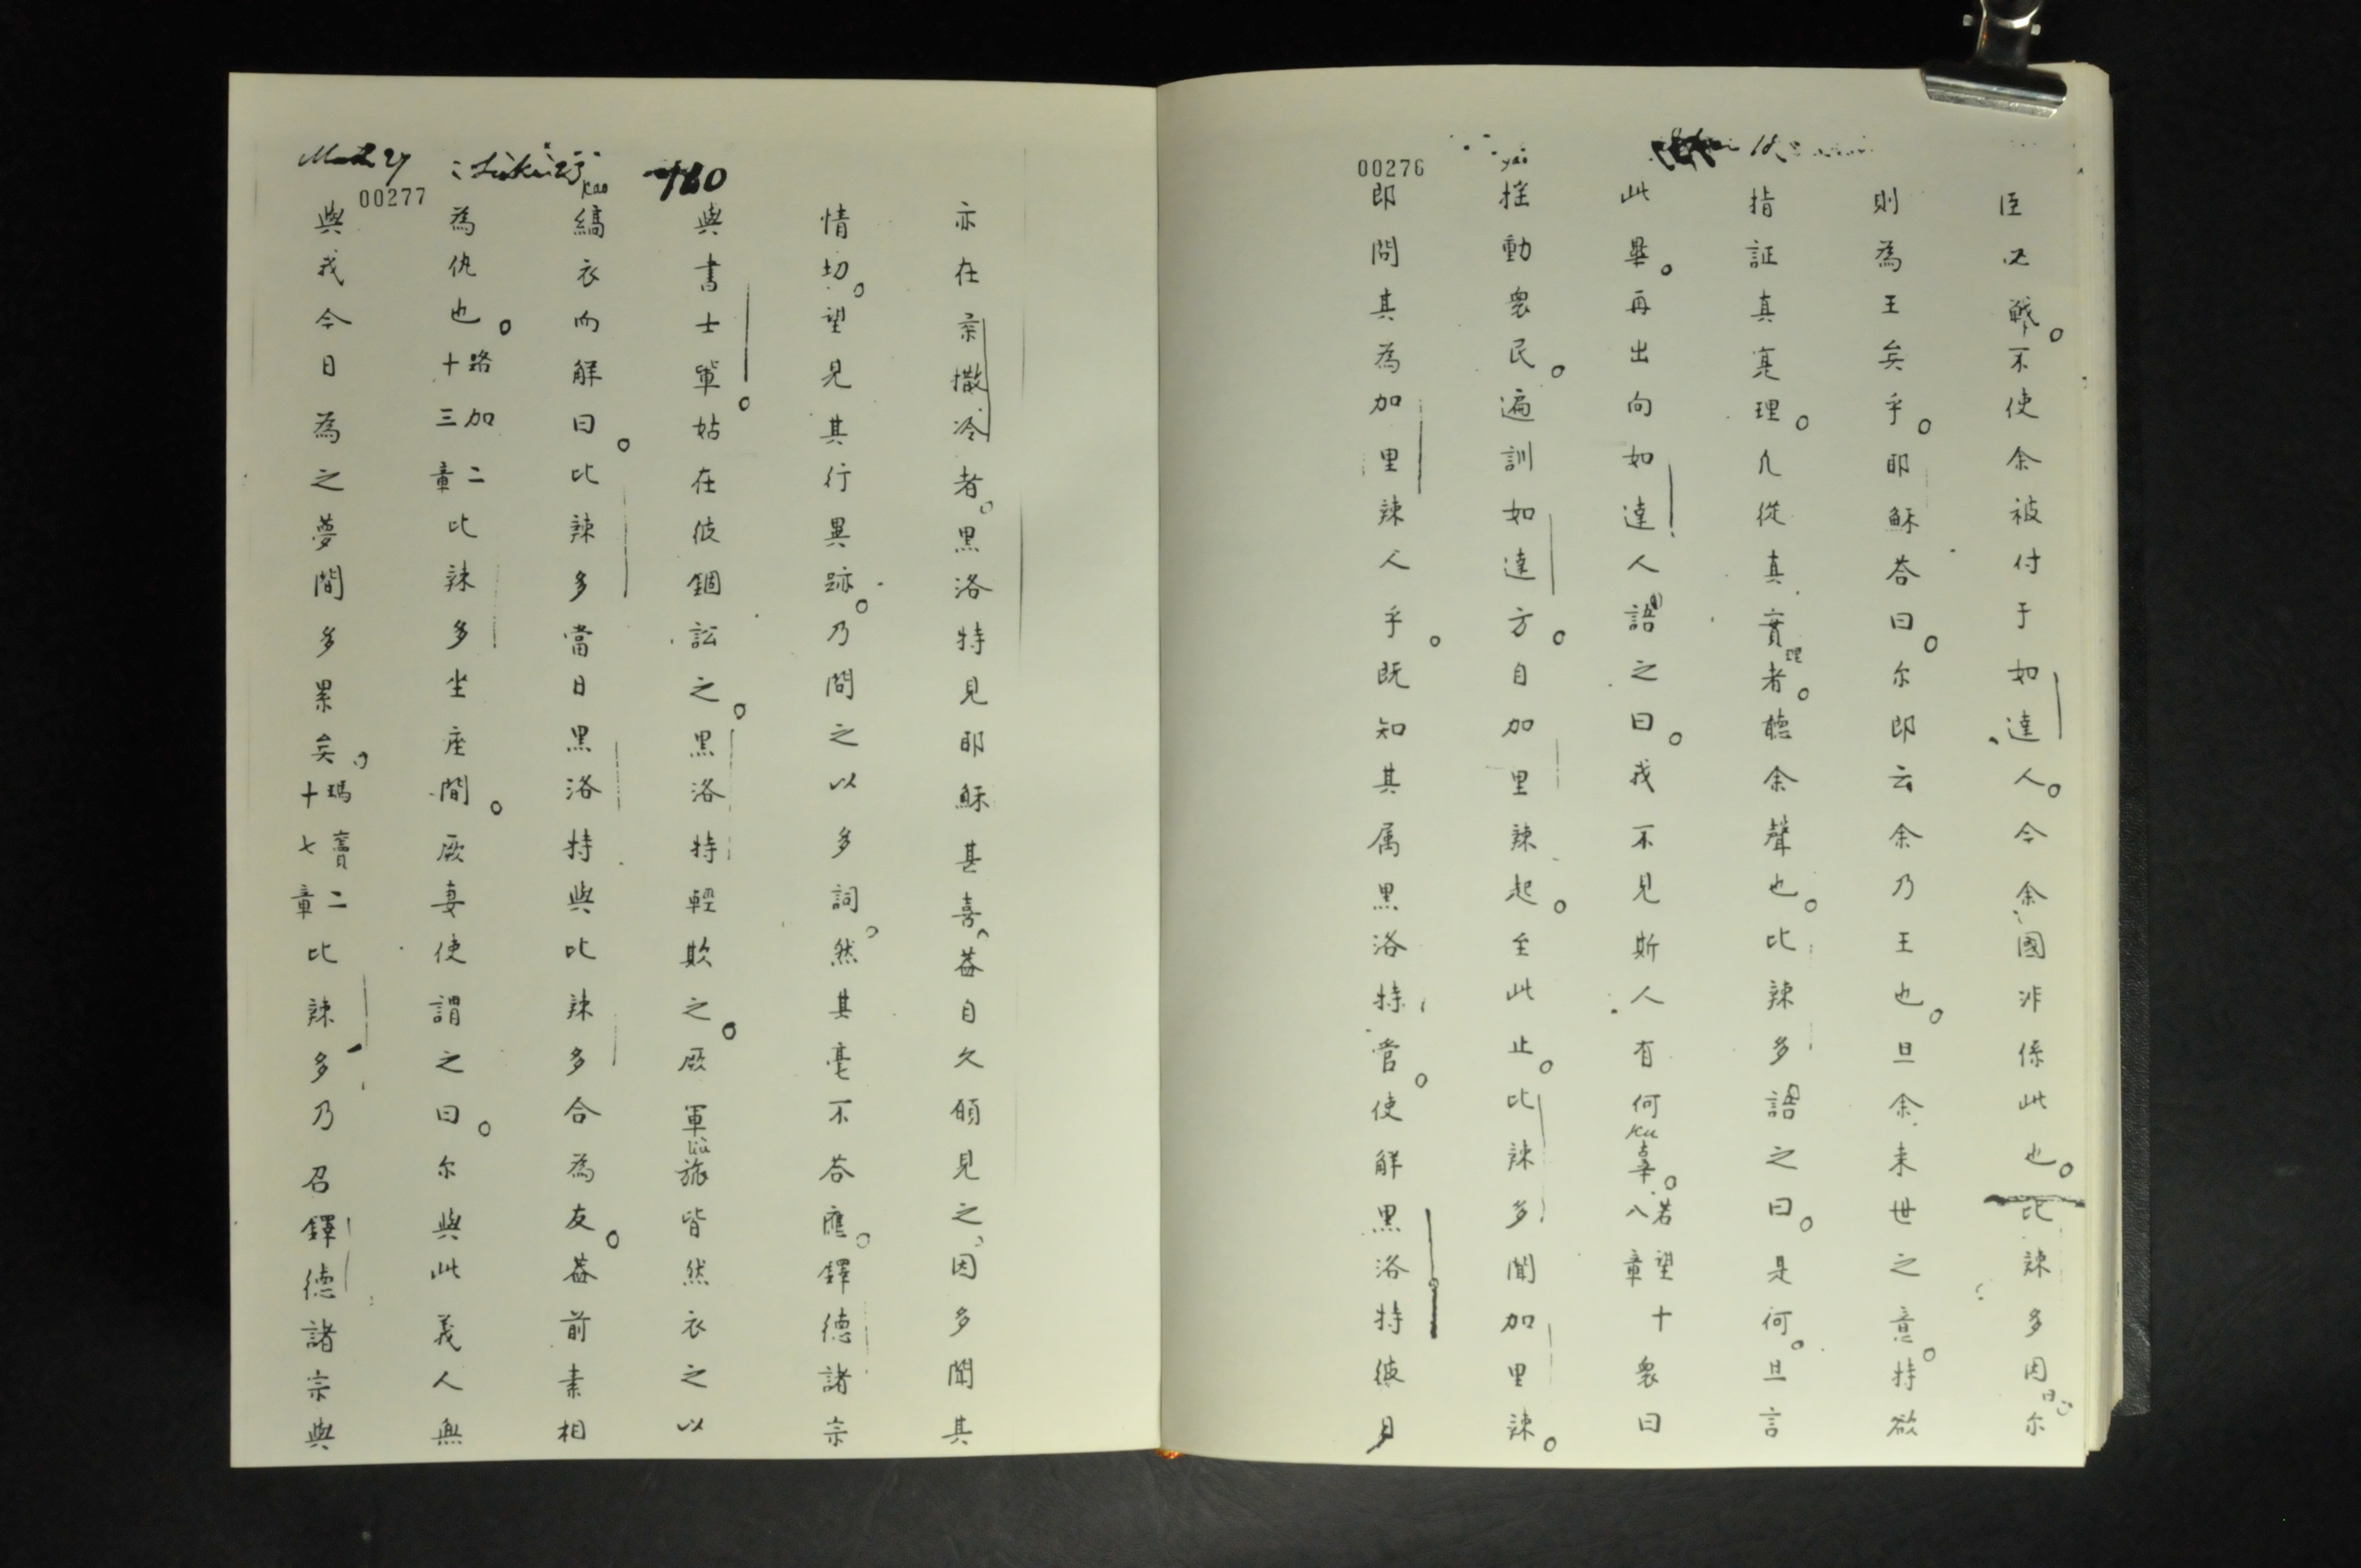 00276
臣必戰。不使余被付于如達人。今余國非係此也。比辣多因曰尔
則為王矣乎。耶穌荅曰。尔即云余乃王也。且余来世之意。特欲
指証真寔理。凡從真實理者。聽余聲也。比辣多語之曰。是何。且言
此畢。再出向如達人語之曰。我不見斯人有何辜。若望十八章衆曰
ku
yai
揰動衆民。遍訓如達方。自加里辣起。至此止。比辣多聞加里辣。
即問其為加里辣人乎。既知其属黑洛特管。使觧黑洛特彼月
亦在柔撒冷者。黑洛特見耶穌甚喜。葢自久願見之。因多聞其
情切。望見其行異跡。乃問之以多詞。然其毫不荅應。鐸德諸宗
180
與書士軰。姑在彼錮訟之。黑洛特輕欺之。厥軍旅皆然衣之以
liu
kao
縞衣而觧曰。比辣多當日黑洛特與比辣多合為友。葢前素相
Luke 23
為仇也。路加二十三章比辣多坐座間。厥妻使謂之曰。尔與此義人無
00277
與我今日為之夢間多累矣。瑪竇二十七章比辣多乃召鐸德諸宗與